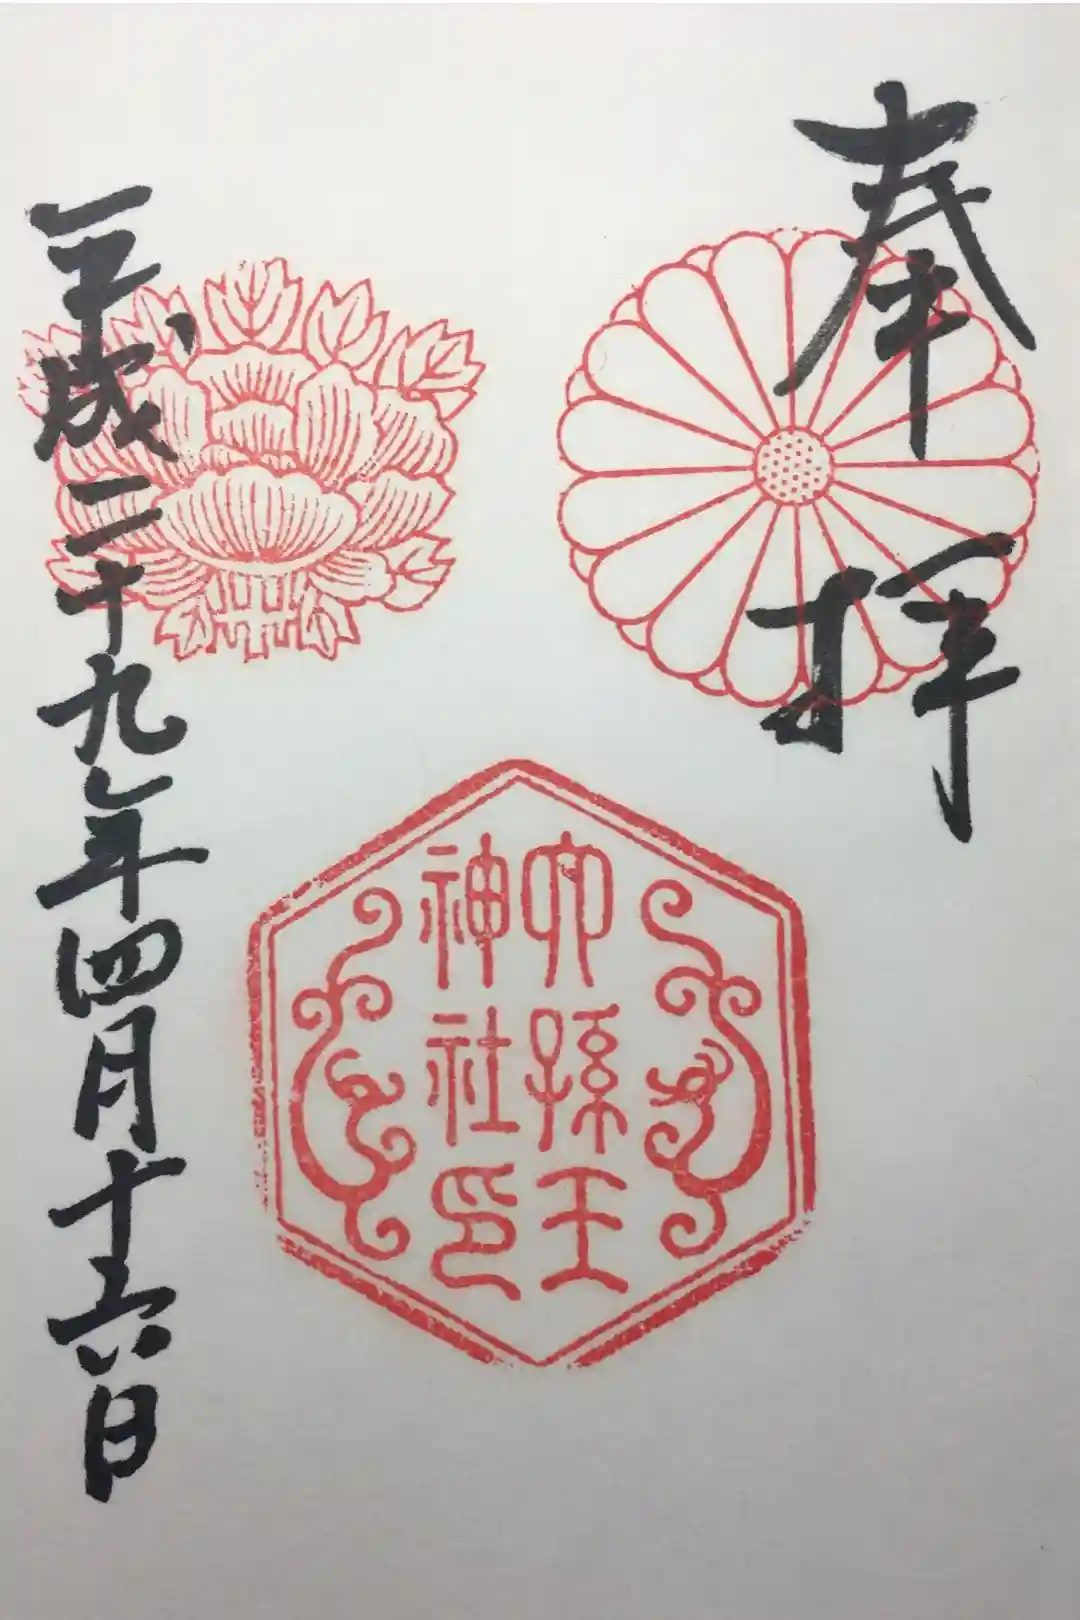 奉拝
六孫王
神社印
平成二十九年四月十六日